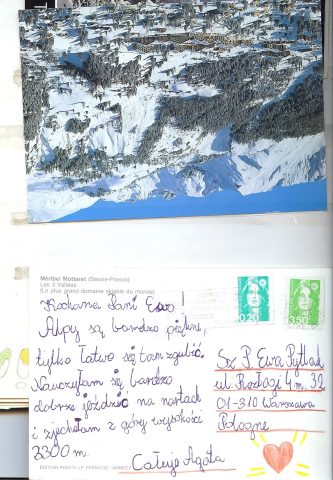 Méribel Mottaret (Savoie-France)
Les 3 Vallées
(Le plus grand domaine skiable du monde)
Kochana Pani Ewo!
Alpy są bardzo piękne,
tylko łatwo się tam zgubić.
Nauczyłam się bardzo
dobrze jeździć na nartach
i zjechałam z góry wysokości
3300 m.
Całuję Agata
0,20
3,50
Sz. P. Ewa Pytlak
ul. 4 m. 32
01-310 Warszawa
Pologne
EDITION PHOTO J.P. FRANCOZ - ANNECY